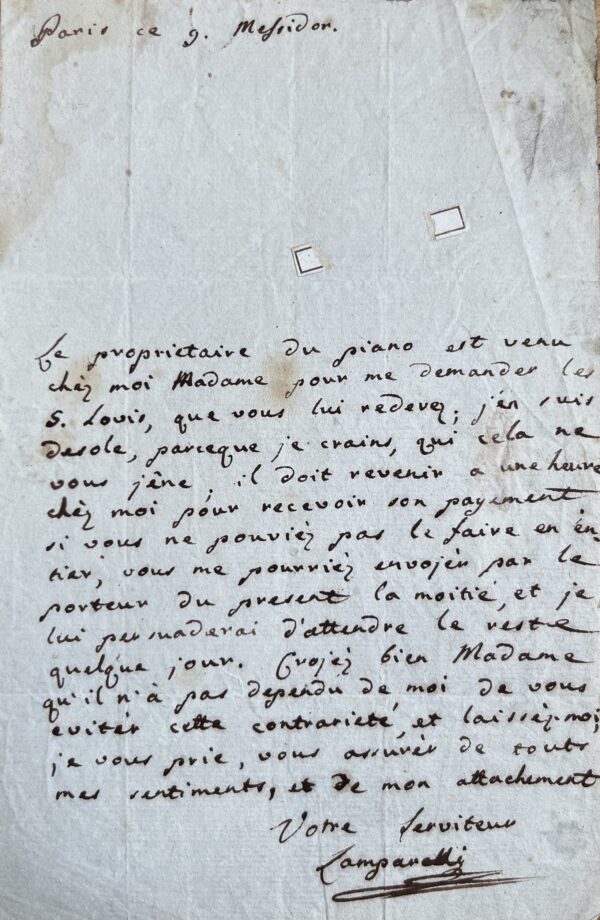 Paris ce 9. Messidor.
Le proprietaire du piano est venu
chéz moi Madame pour me demander les
5. Louis, que vous lui redevez; j'en suis
desole, parceque je crains, qui cela ne
vous jêne; il doit revenir a une heure
chéz moi pour recevoir son payement,
si vous ne pouviéz pas le faire en en-
tier, vous me pourriéz envojér par le
porteur du present la moitié, et je
lui persuaderai d'attendre le reste
quelque jour. Crojéz bien Madame
qu'il n'à pas dependu de moi de vous
evitér cette contrarieté, et laisséz-moi,
je vous prie, vous assurér de touts
mes sentiments, et de mon attachement
Votre serviteur
Lamparelli